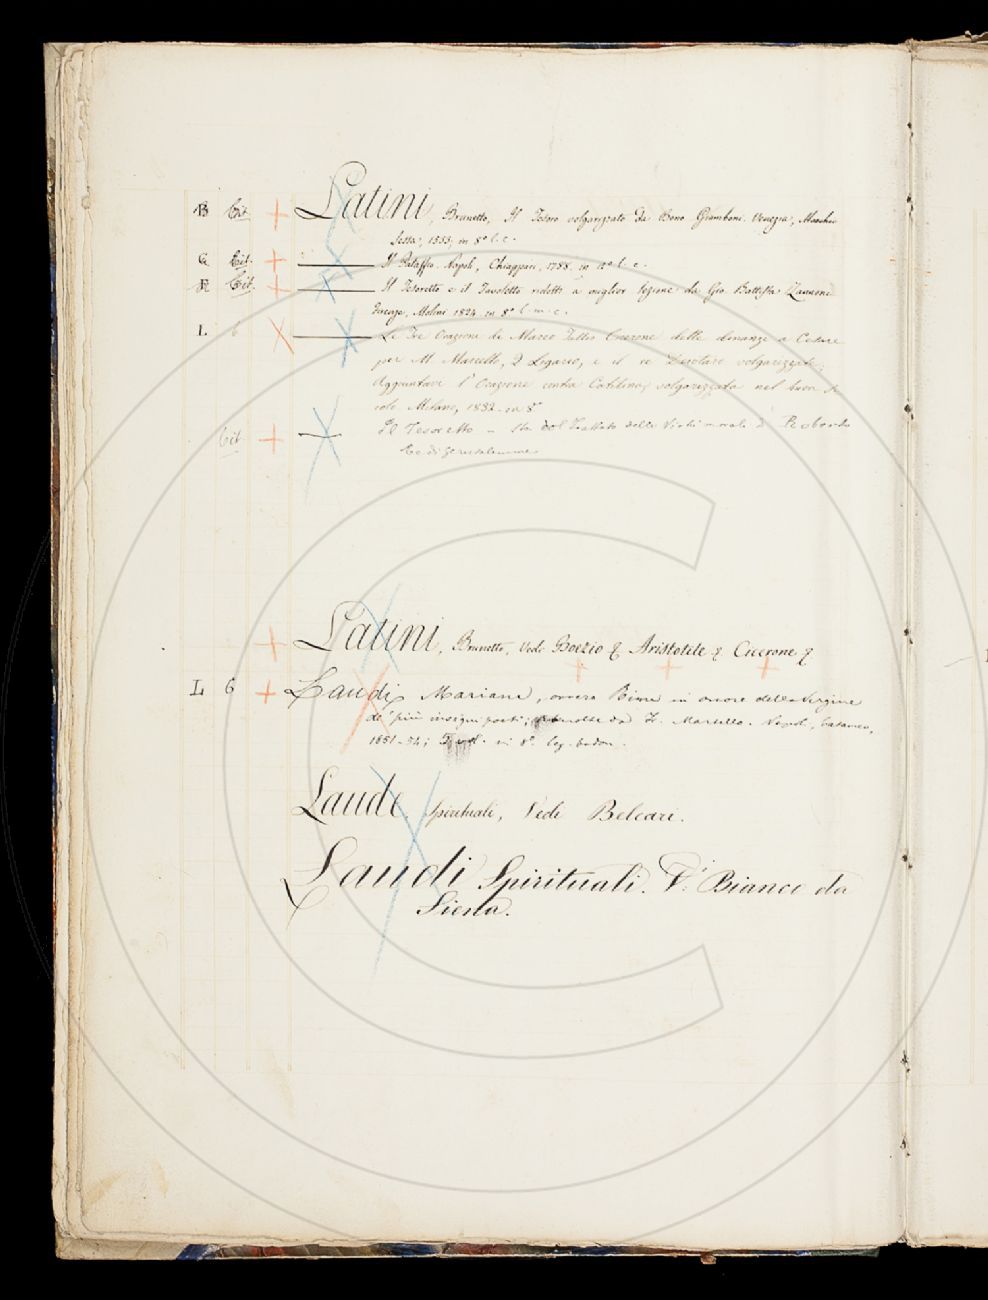 B Cit. Latini, Brunetto, Il Tesoro volgarizzato da Bono Giamboni. Venezia, Marchio
Sessa, 1533, in 8° l. c.
G Cit. Il Pataffio. Napoli, Chiappari, 1788. in 12° l. c.
E Cit. Il Tesoretto e il Favoletto ridotti a miglior lezione da Gio. Battista Zannoni
Firenze, Molini 1824. in 8° l. m. c.
L 6 Le Tre Orazioni di Marco Tullio Cicerone dette dinanzi a Cesare
per M. Marcello, Q. Ligario, e il re Dejotaro volgarizzate;
Aggiuntavi l'Orazione contra Catilina, volgarizzata nel buon se
colo. Milano, 1832. in 8°
Cit Il Tesoretto - Sta col Trattato delle Virtù morali di Roberto
Re di Gerusalemme
Latini, Brunetto, Vedi Boezio & Aristotile & Cicerone &
L 6 Laudi Mariane, ovvero Rime in onore della Vergine
de' più insigni poeti; da F. Martello. Napol.,
1851-54; vol. in 8°. leg. bodon.
Laude, Spirituali, Vedi Belcari.
Laudi Spirituali. V. Bianco da
Siena.